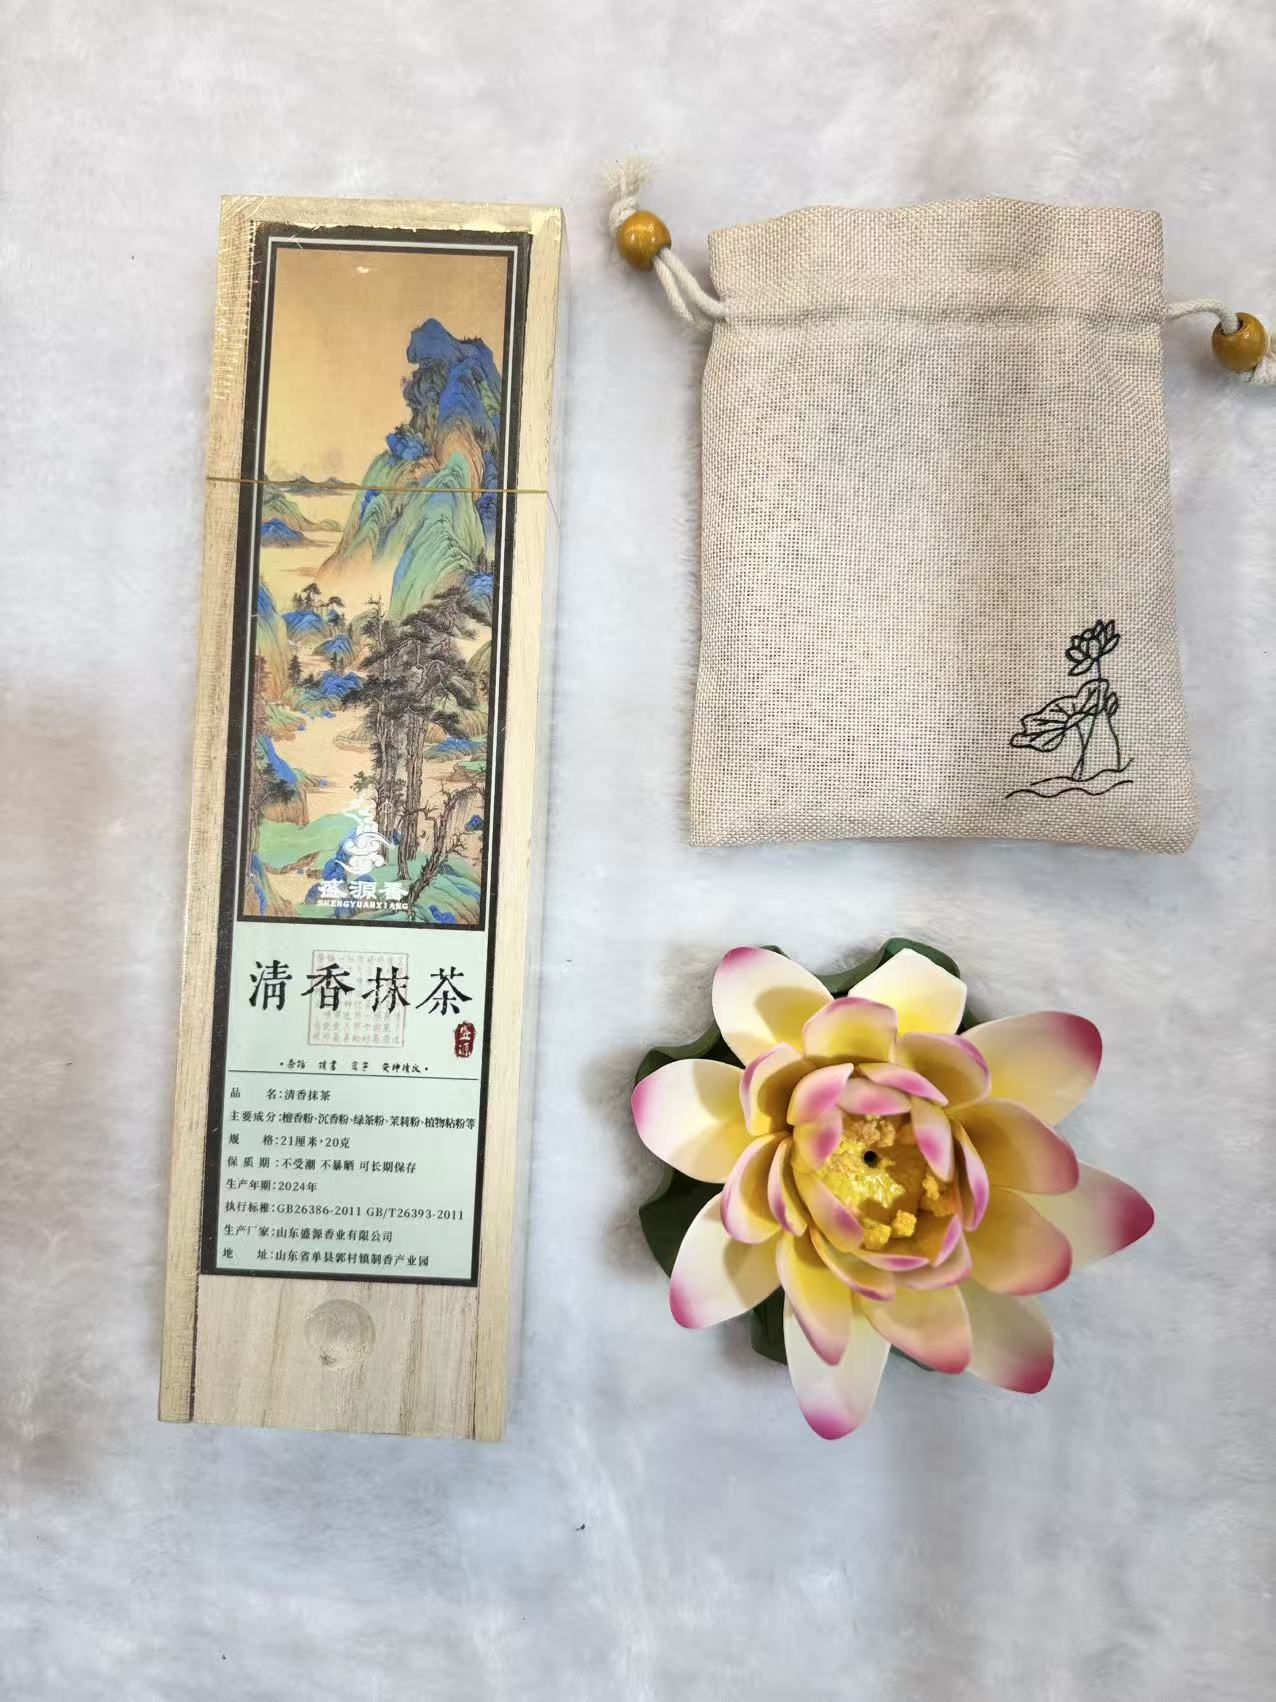 盛源香
SHENGYUANXIANG
清香抹茶
盛源
品名:清香抹茶
主要成分:檀香粉、沉香粉、绿茶粉、茉莉粉、植物粘粉等
规格:21厘米,20克
保质期:不受潮 不暴晒 可长期保存
生产年期:2024年
执行标椎:GB26386-2011 GB/T26393-2011
生产厂家:山东盛源香业有限公司
地址:山东省单县郭村镇制香产业园